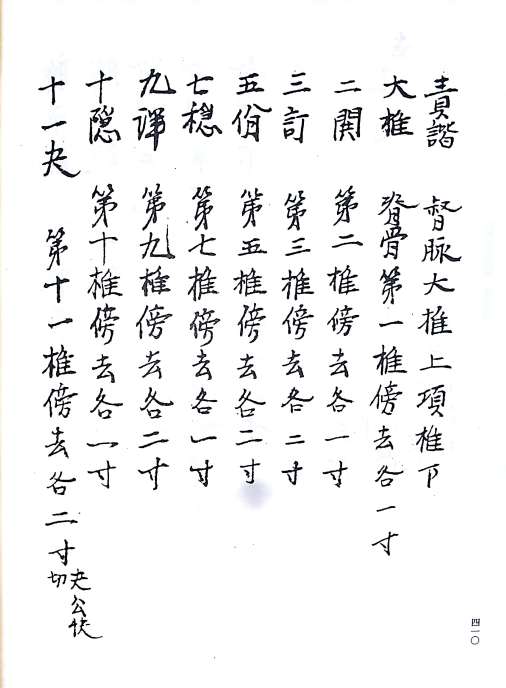 責譜 督脈大椎上項椎下
大椎 脊骨第一椎傍去各一寸
二関 第二椎傍去各一寸
三訂 第三椎傍去各二寸
五佾 第五椎傍去各二寸
七穏 第七椎傍去各一寸
九渾 第九椎傍去各二寸
十隠 第十椎傍去各一寸
十一夬 第十一椎傍去各二寸 夬公快切
四一〇